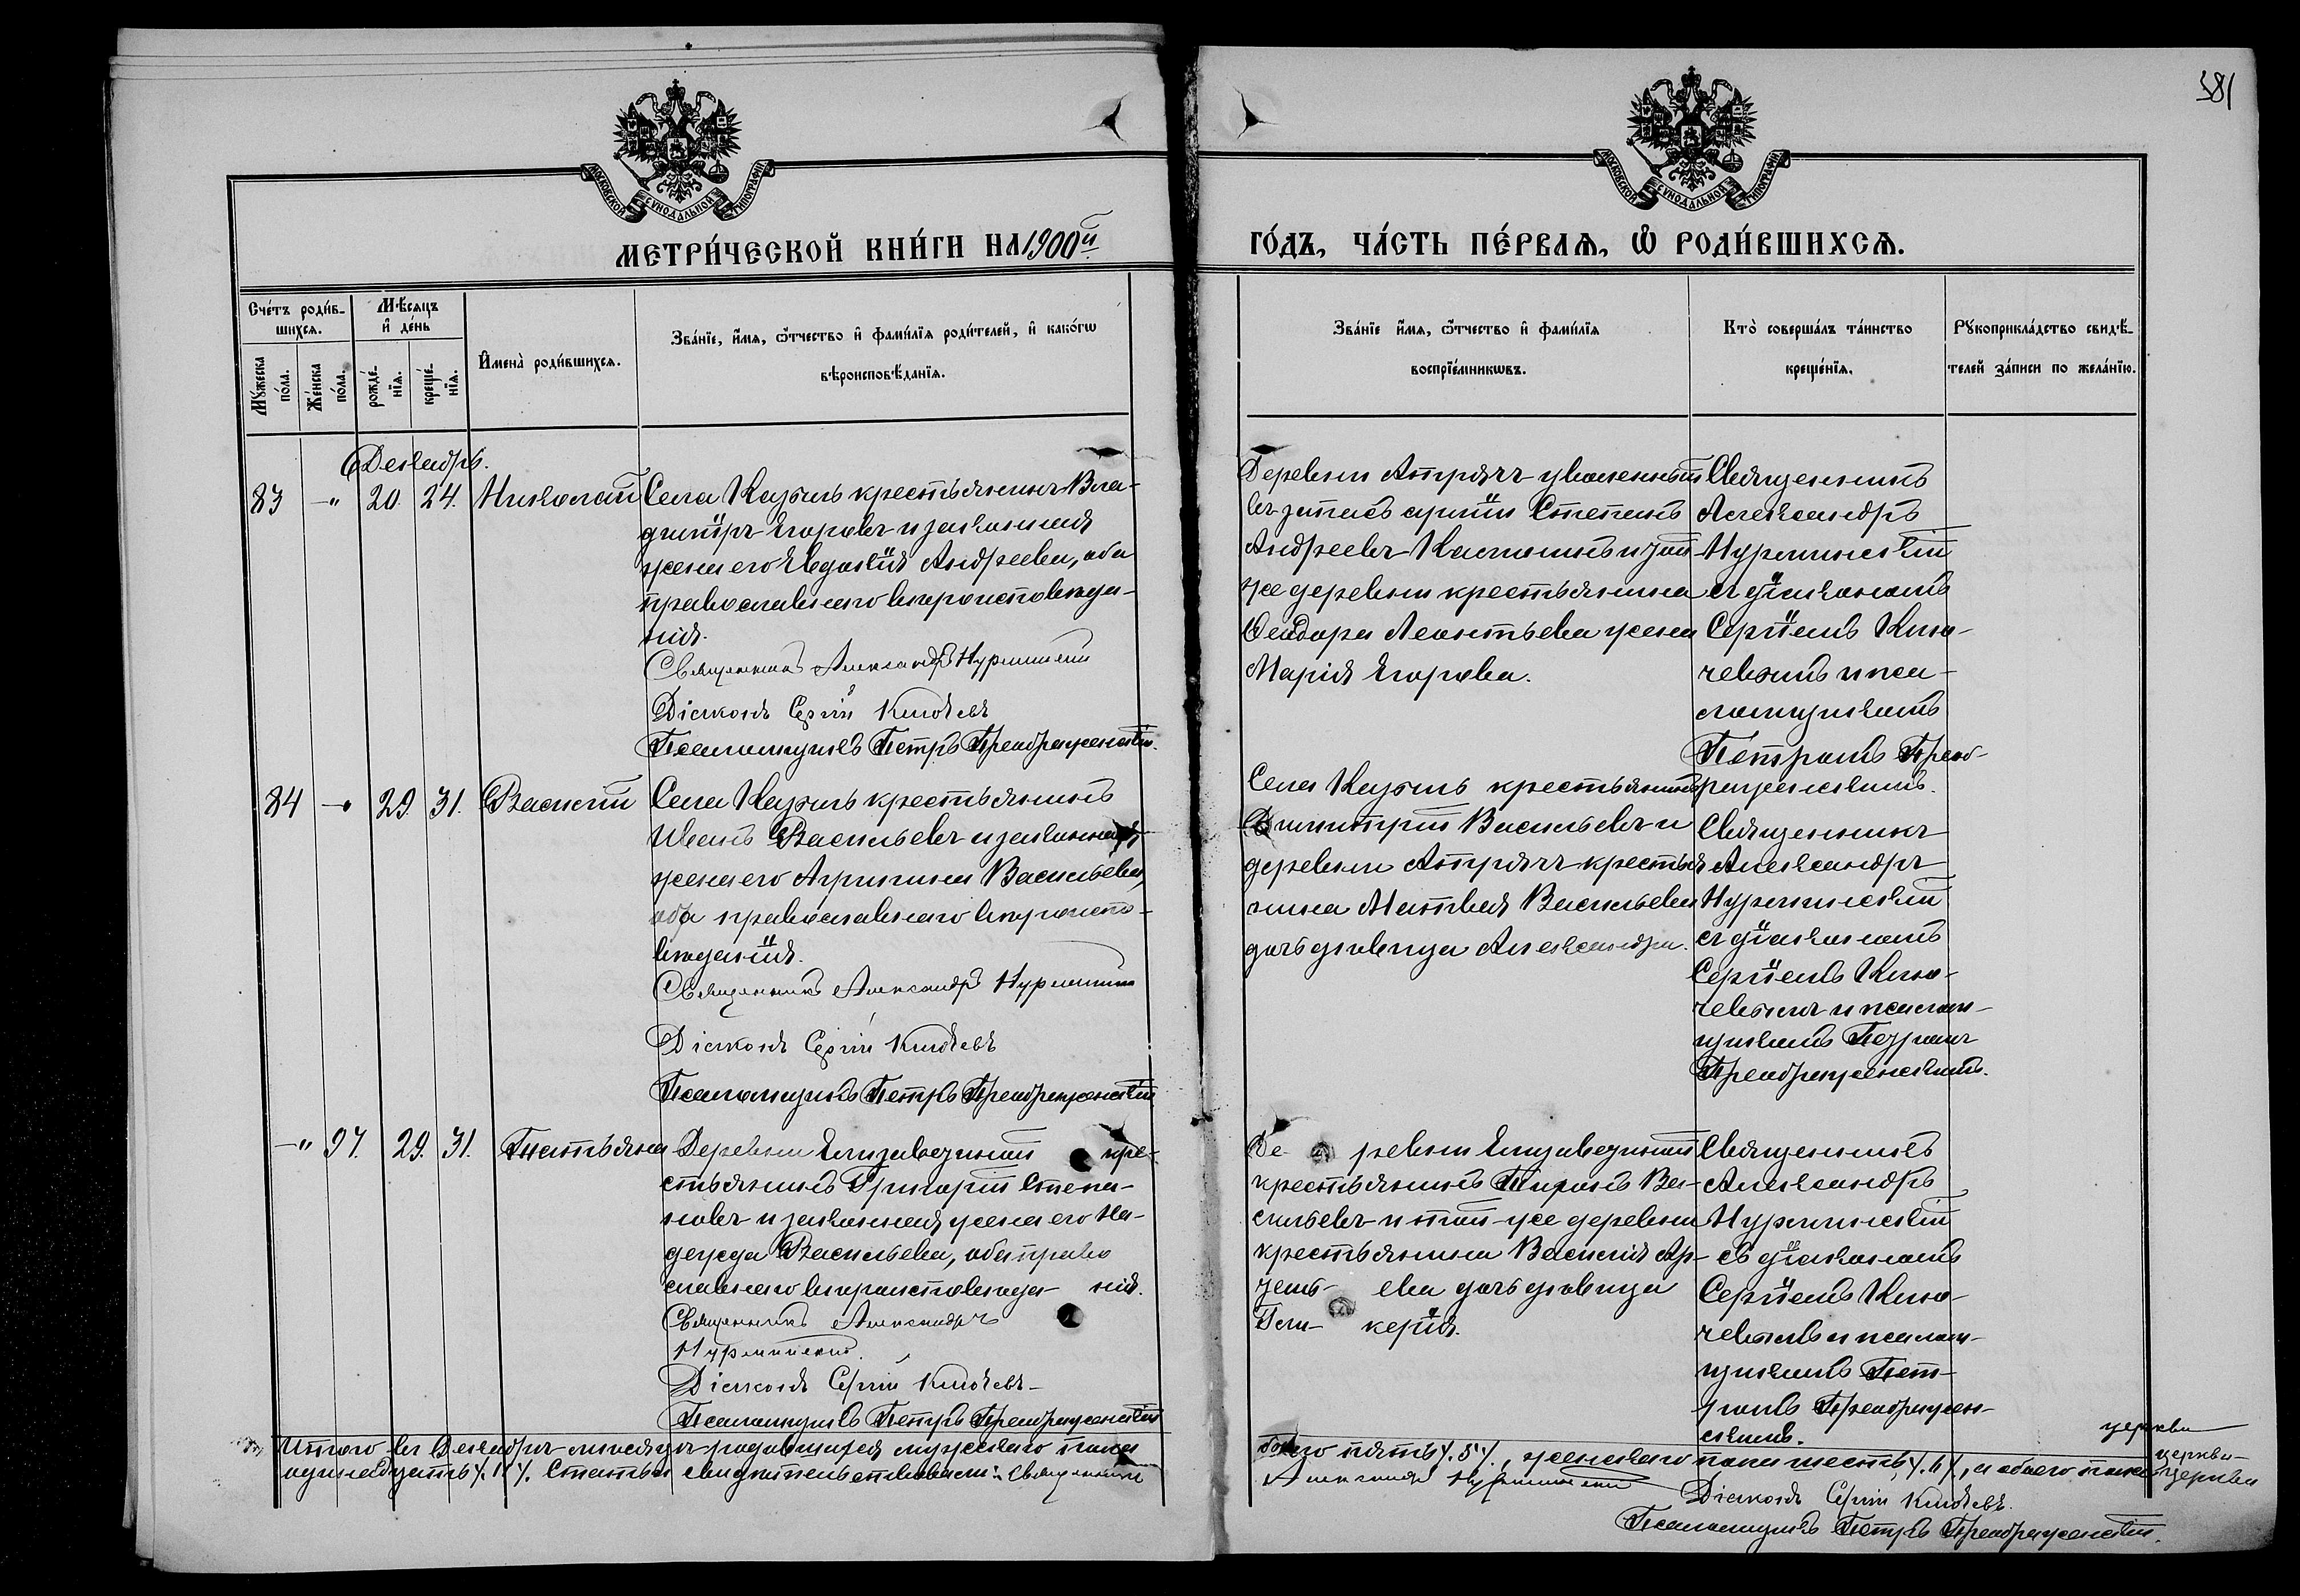 381
МОСКОВСКОЙ СѴНОДАЛЬНОЙ ТИПОГРАФІИ
МОСКОВСКОЙ СѴНОДАЛЬНОЙ ТИПОГРАФІИ
МЕТРИ́ЧЕСКОЙ КНИ́ГИ НА 1900й
ГО́ДЪ, ЧА́СТЬ ПЕ́РВАѦ, Ѽ РОДИ́ВШИХСѦ.
Счéтъ роди́в-
шихсѧ.
Мꙋ́жеска
по́ла.
Же́нска
по́ла.
Мѣ́сѧцъ
и҆ де́нь
рожде́-
нїѧ.
креще́-
нїѧ.
И҆мена̀ роди́вшихсѧ.
Зва́нїе, и҆́мѧ, ѻ҆́тчество и҆ фами́лїѧ роди́телей, и҆ како́гѡ
вѣроисповѣ́данїѧ.
Зва́нїе и҆́мѧ, ѻ҆́тчество и҆ фами́лїѧ
воспрїе́мникѡвъ.
Кто̀ соверша́лъ та́инство
креще́нїѧ.
Рꙋкоприкла́дство свидѣ́-
телей за́писи по жела́нїю.
Декабрь.
83 -" 20. 24. Николай
Села Каузиль крестьянинъ Вла-
диміръ Егоровъ и законная
жена его Евдокія Андреева, оба
православнаго вѣроисповѣда-
нія.
Священникъ Александръ Нурминскій
Діаконъ Сергій Ключевъ
Псаломщикъ Петръ Преображенскій.
Деревни Атрячъ уволенный
въ запасъ арміи Степанъ
Андреевъ и той
же деревни крестьянина
Ѳеодора Леонтьева жена
Марія Егорова.
Священникъ
Александръ
Нурминскій
съ діакономъ
Сергіемъ Клю-
чевымъ и пса-
ломщикомъ
Петромъ Преоб-
раженскимъ.
84 - 29. 31. Василій
Села Каузиль крестьянинъ
Иванъ Васильевъ и законная
жена его Агрипина Васильева,
оба православнаго вѣроиспо-
вѣданія.
Священникъ Александръ Нурминскій
Діаконъ Сергій Ключевъ
Псаломщикъ Петръ Преображенскій
Села Каузиль крестьянинъ
Димитрій Васильевъ и
деревни Атрячъ крестья-
нина Матвея Васильева
дочь дѣвица Александра.
Священникъ
Александръ
Нурминскій
съ діакономъ
Сергіемъ Клю-
чевымъ и псалом-
щикомъ Петромъ
Преображенскимъ.
-" 97. 29. 31. Татьяна
Деревни Елизаветиной кре-
стьянинъ Григорій Степа-
новъ и законная жена его На-
дежда Васильева, оба право
славнаго вѣроисповѣда- нія.
Священникъ Александръ
Нурминскій.
Діаконъ Сергій Ключевъ
Псаломщикъ Петръ Преображенскій
Де- ревни Елизаветиной
крестьянинъ Миронъ Ва-
сильевъ и той-же деревни
крестьянина Василія Ар-
темь- ева дочь дѣвица
Гли- керія.
Священникъ
Александръ
Нурминскій
съ діакономъ
Сергіемъ Клю-
чевымъ и псалом-
щикомъ Пет-
ромъ Преображен-
скимъ.
Итого въ Декабрѣ мѣсяцѣ родившихся мужскаго пола пять /.5/., женскаго пола шесть /.6/., а обоего пола
одиннадцать /.11/. Статьи свидѣтельствовали: Священникъ Александръ Нурминскій
церкви
церкви
церкви
Діаконъ Сергій Ключевъ.
Псаломщикъ Петръ Преображенскій.